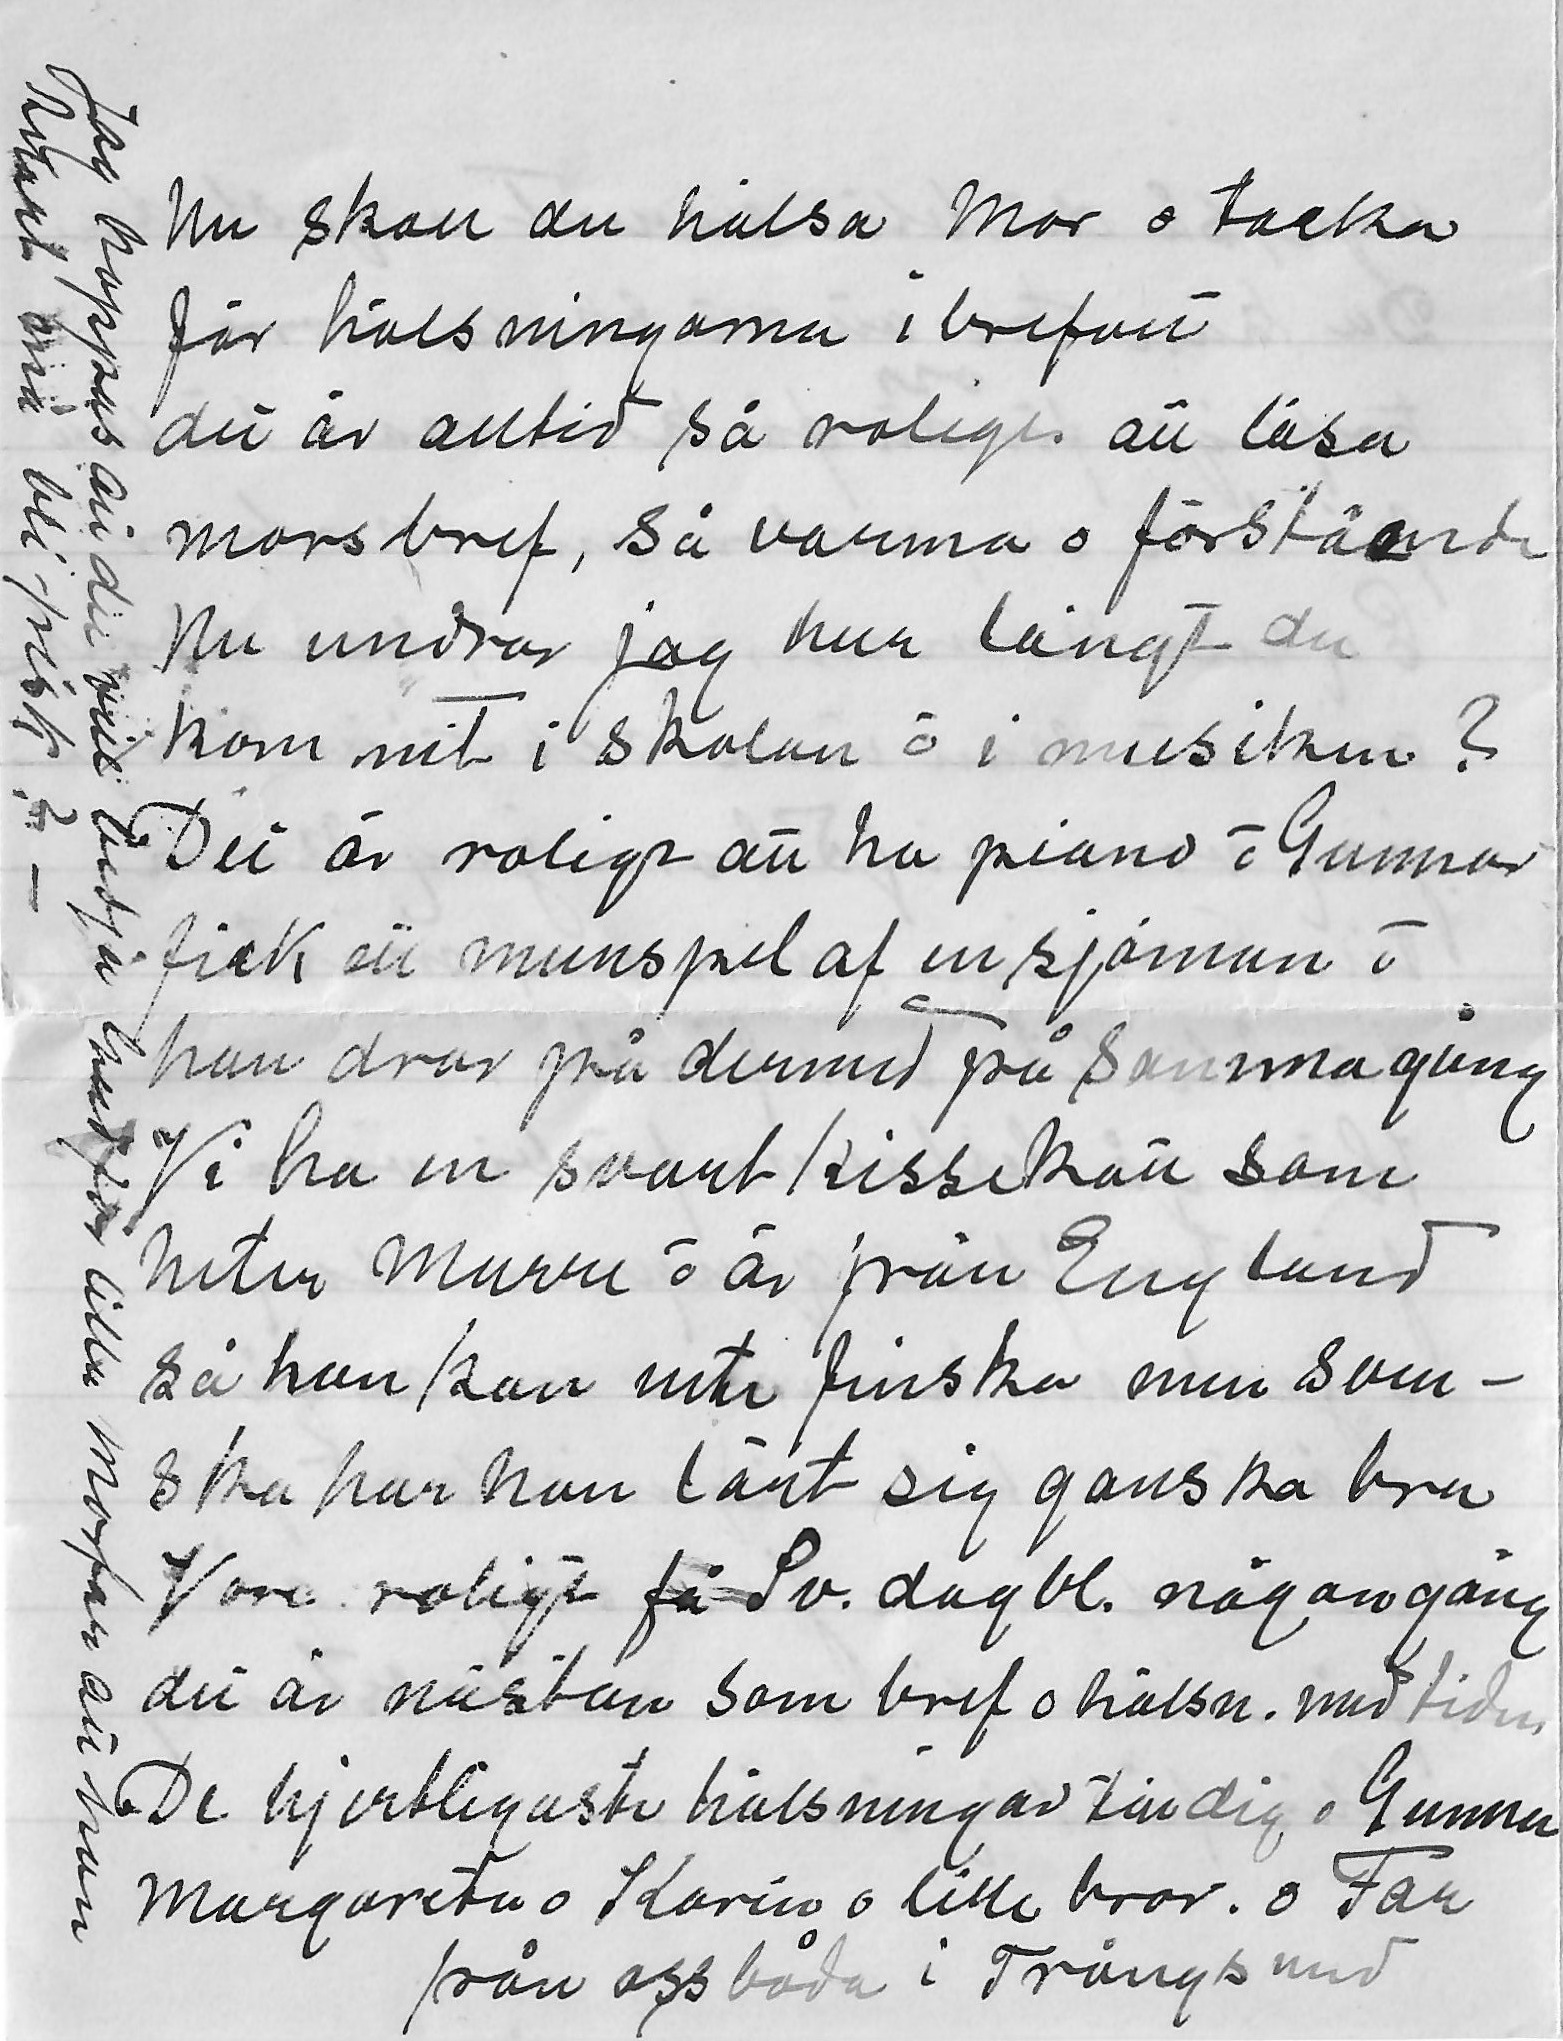 Nu skall du hälsa Mor o tacka
för hälsningarna i brefvet
det är alltid så roligt att läsa
mors bref, så varma o förstående
Nu undrar jag hur långt du
kom nit i skolan o i musiken?
Det är roligt att ha piano o Gunnar
fick ett munspel af en sjöman o
han drar på dermed på samma gång
Vi ha en svart kissekatt som
heter Murre o är från England
så han kan inte finska men sven-
ska har han lärt sig ganska bra
Vore roligt få Sv. dagbl. någon gång
det är nästan som bref o hälsn. med tiden
De hjertligaste hälsningar till dig o Gunnar
Margareta o Karin o lille bror. o Far
från oss båda i Trångsund
Jag hoppas att du vill bedja Gud för lilla Morfar att han
snart må bli frisk? —